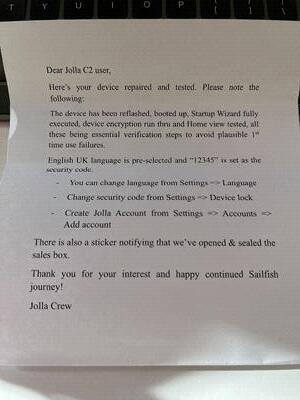 T Y U I O P
Dear Jolla C2 user,
Here's your device repaired and tested. Please note the
following:
The device has been reflashed, booted up, Startup Wizard fully
executed, device encryption run thru and Home view tested, all
these being essential verification steps to avoid plausible 1st
time use failures.
English UK language is pre-selected and “12345” is set as the
security code.
- You can change language from Settings => Language
- Change security code from Settings => Device lock
- Create Jolla Account from Settings => Accounts =>
Add account
There is also a sticker notifying that we've opened & sealed the
sales box.
Thank you for your interest and happy continued Sailfish
journey!
Jolla Crew